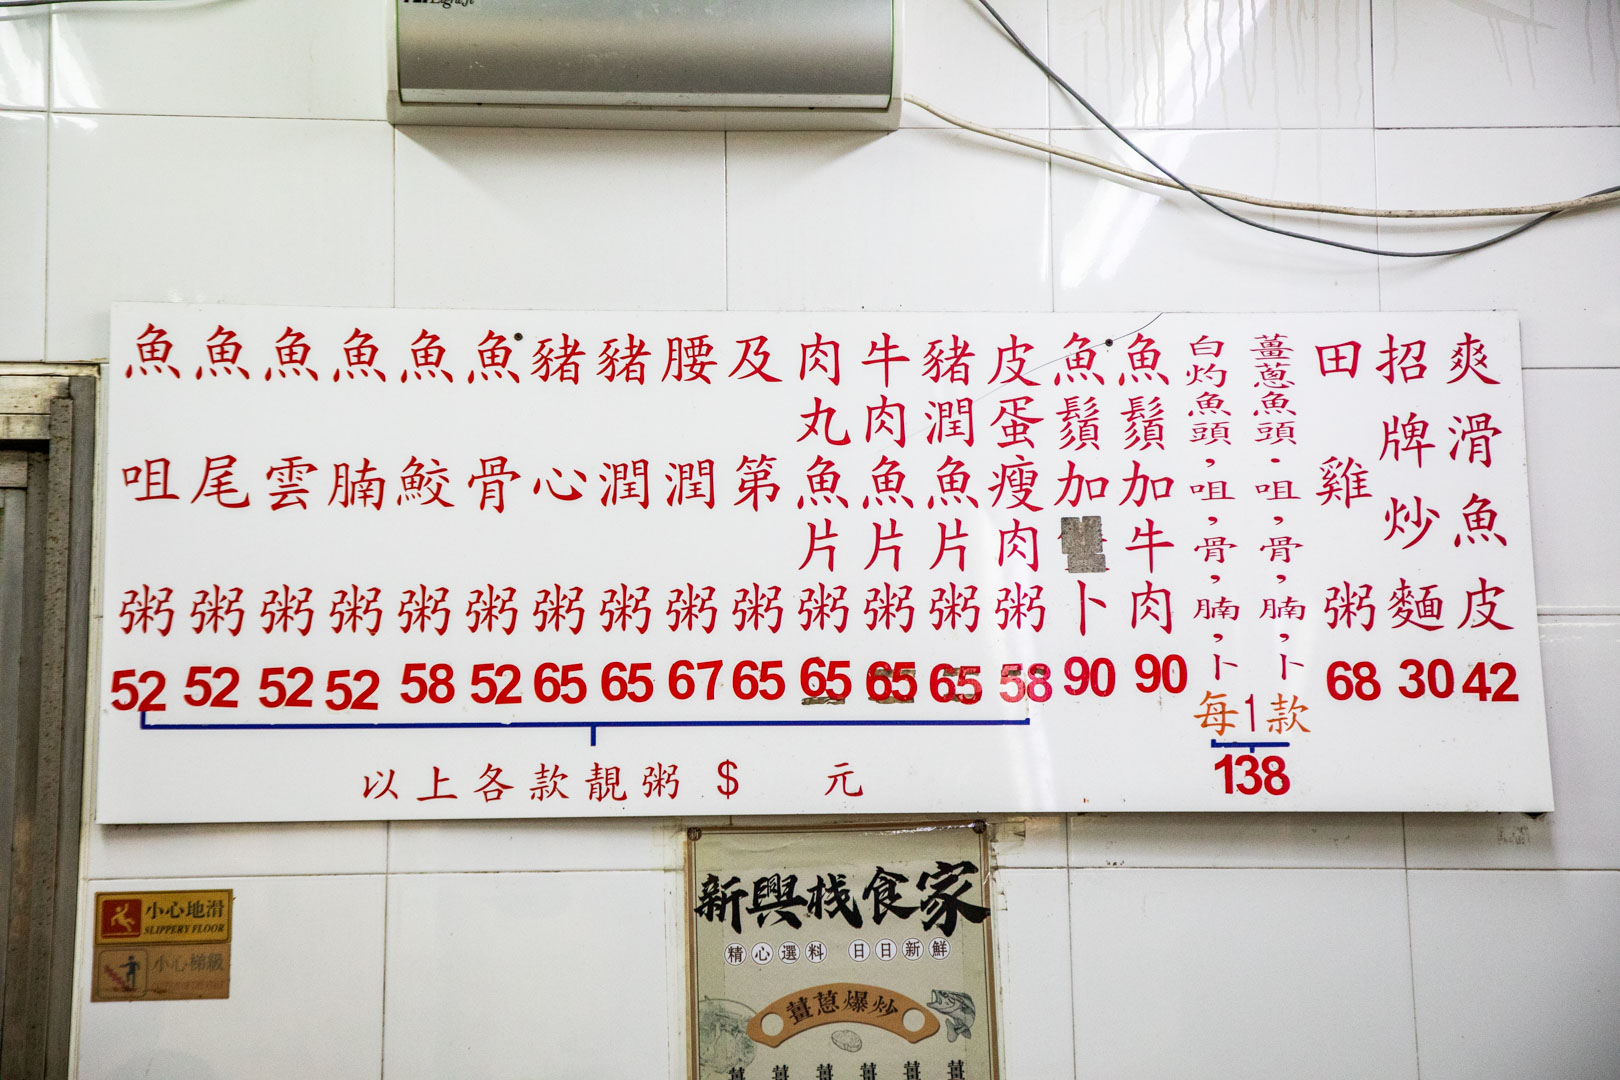 魚咀粥 52
魚尾粥 52
魚雲粥 52
魚腩粥 52
魚鮫粥 58
魚骨粥 52
豬心粥 65
豬潤粥 65
腰潤粥 67
及第粥 65
肉丸魚片粥 65
牛肉魚片粥 65
豬潤魚片粥 65
皮蛋瘦肉粥 58
魚鬚加卜 90
魚鬚加牛肉 90
白灼魚頭，咀，骨，腩，卜
薑蔥魚頭·咀，骨，腩，卜
每1款
138
田雞粥 68
招牌炒麵 30
爽滑魚皮 42
以上各款靚粥 $ 元
新興棧食家
精心選料 日日新鮮
薑蔥爆炒
薑 薑 薑 薑 薑 薑
小心地滑
SLIPPERY FLOOR
小心梯級